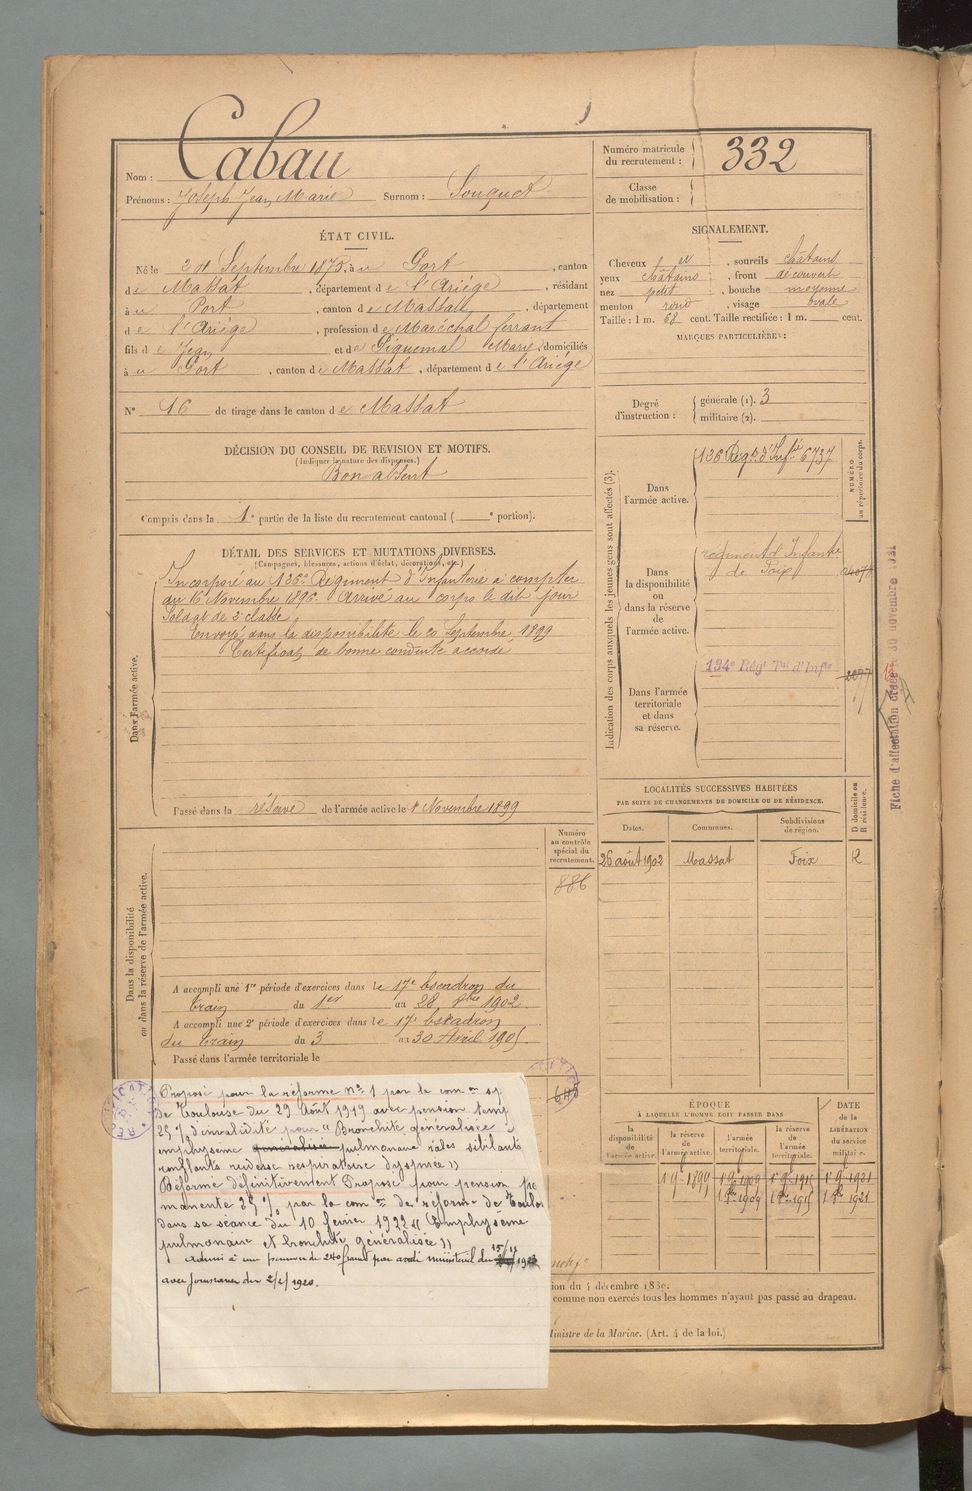 Nom : Cabau
Prénoms : Joseph Jean Marie Surnom : Souquet
ÉTAT CIVIL.
Né le Septembre 1875, à u Port, canton
de Massat, département de l'Ariége, résidant
à u Port, canton de Massat, département
de l'Ariége, profession de Maréchal ferrant
fils de Jean et de Piquemal Marie, domiciliés
à u Port, canton de Massat, département de l'Ariége
N° 16 de tirage dans le canton de Massat
DÉCISION DU CONSEIL DE REVISION ET MOTIFS.
(Indiquer la nature des dispenses.)
Bon absent
Compris dans la 1e partie de la liste du recrutement cantonal ( e portion).
DÉTAIL DES SERVICES ET MUTATIONS DIVERSES.
(Campagnes, blessures, actions d'éclat, décorations, etc.)
Dans l'armée active.
Incorporé au 136e Régiment d'Infanterie à compter
du 16 Novembre 1896. Arrivé au corps le dit jour
Soldat de 2e classe.
Envoyé dans la disponibilité le 20 Septembre 1899
Certificat de bonne conduite accordé
Passé dans la réserve de l'armée active le 1 Novembre 1899
Dans la disponibilité
ou dans la réserve de l'armée active.
Numéro
au contrôle
spécial du
recrutement.
886
A accompli une 1re période d'exercices dans le 17e Escadron du
train du 1er au 28 1902
A accompli une 2e période d'exercices dans le 17e Escadron
du train du 3 au 30 Avril 1905.
Passé dans l'armée territoriale le
Proposé pour la réforme n° 1 par la com on sp
de Toulouse du 29 Août 1919 avec pension temp
25 % d'invalidité pour "Bronchite généralisée
emphyseme pulmonaire râles sibilants
ronflants rudesse respiratoire dyspnée"
Réformé définitivement Proposé pour pension pe
manente 25 % par la com on de réforme de Toulou
dans sa séance du 10 février 1922 "Emphysème
pulmonaire et bronchite généralisée"
Admis à une pension de 240 francs par arrêté ministériel du 15/11
avec jouissance du 2/2/1920.
Numéro matricule
du recrutement : 332
Classe
de mobilisation :
SIGNALEMENT.
Cheveux , sourcils châtains
yeux châtains , front découvert
nez petit , bouche moyenne
menton rond , visage ovale
Taille : 1 m. 68 cent. Taille rectifiée : 1 m. cent.
MARQUES PARTICULIÈRES :
Degré
d'instruction :
générale (1). 3
militaire (2).
Indication des corps auxquels les jeunes gens sont affectés (3).
NUMÉRO
au répertoire du corps.
Dans
l'armée active.
136 Régt d'Infie 6737
Dans
la disponibilité
ou
dans la réserve
de
l'armée active.
régiment d'Infanterie
de Foix
Dans l'armée
territoriale
et dans
sa réserve.
134e Régt Tal d'Infie
Fiche d'affectation créée 30 novembre 1931
LOCALITÉS SUCCESSIVES HABITÉES
PAR SUITE DE CHANGEMENTS DE DOMICILE OU DE RÉSIDENCE.
Dates. Communes. Subdivisions
de région. D domicile ou
R résidence.
26 août 1902 Massat Foix R
ÉPOQUE
À LAQUELLE L'HOMME DOIT PASSER DANS
DATE
DE LA
LIBÉRATION
du service
militaire.
la
disponibilité
de
l'armée active.
la réserve
de
l'armée active.
l'armée
territoriale.
la réserve
de l'armée
territoriale.
1 9 1899 1 9 1909 1 9 1915 1 9 1921
1909 1915 1921
ion du 4 décembre 1830.
comme non exercés tous les hommes n'ayant pas passé au drapeau.
Ministre de la Marine. (Art. 4 de la loi.)